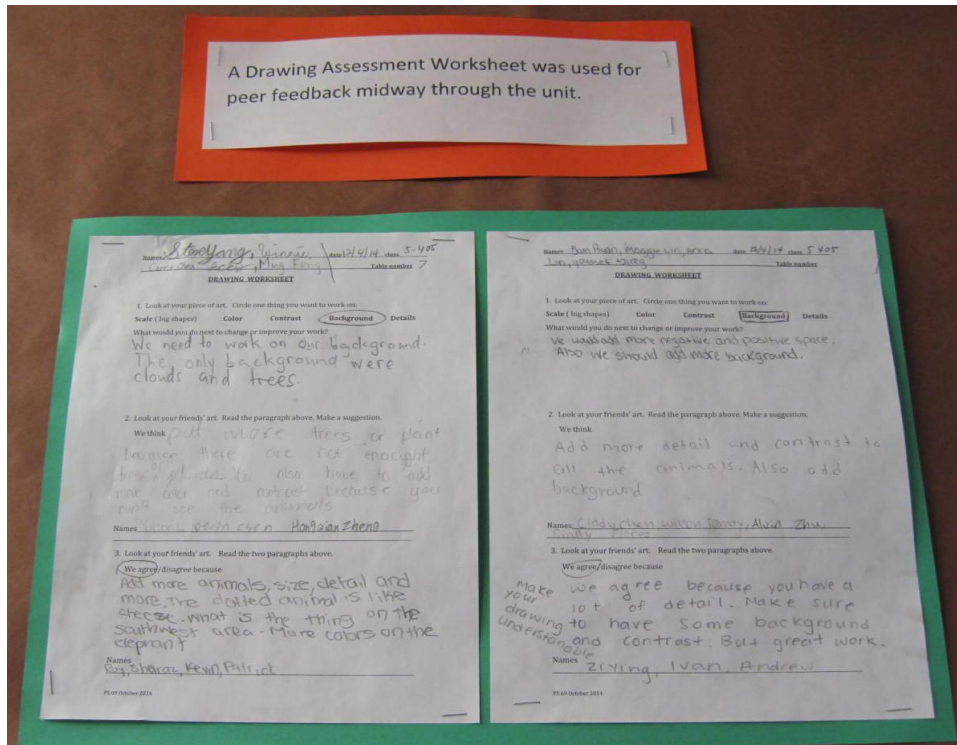 A Drawing Assessment Worksheet was used for
peer feedback midway through the unit.
Names Winnie, date 12/4/14 class 5-405
Ming Table number 7
DRAWING WORKSHEET
1. Look at your piece of art. Circle one thing you want to work on:
Scale ( big shapes) Color Contrast Background Details
What would you do next to change or improve your work?
We need to work on our background.
The only background were
clouds and trees.
2. Look at your friends' art. Read the paragraph above. Make a suggestion.
We think put more trees or plant
because there are not enough
trees You also have to add
color and contrast because you
can't see the animals
Names
3. Look at your friends' art. Read the two paragraphs above.
We agree/disagree because
Add more animals, size, detail and
more. The dotted animal is like
cheese. What is the thing on the
southwest area - More colors on the
elephant
Names
Kevin, Patrick
PS 69 October 2014
Names date 12/4/14 class 5-405
Table number
DRAWING WORKSHEET
1. Look at your piece of art. Circle one thing you want to work on:
Scale ( big shapes) Color Contrast Background Details
What would you do next to change or improve your work?
We would add more negative and positive space.
Also we should add more background.
2. Look at your friends' art. Read the paragraph above. Make a suggestion.
We think
Add more detail and contrast to
all the animals. Also add
background
Names Cindy chen, Alvin Zhu
3. Look at your friends' art. Read the two paragraphs above.
We agree/disagree because
we agree because you have a
lot of detail. Make sure
to have some background
and contrast. But great work.
Make
your
drawing
understandable
Names Ziying, Ivan, Andrew
PS 69 October 2014